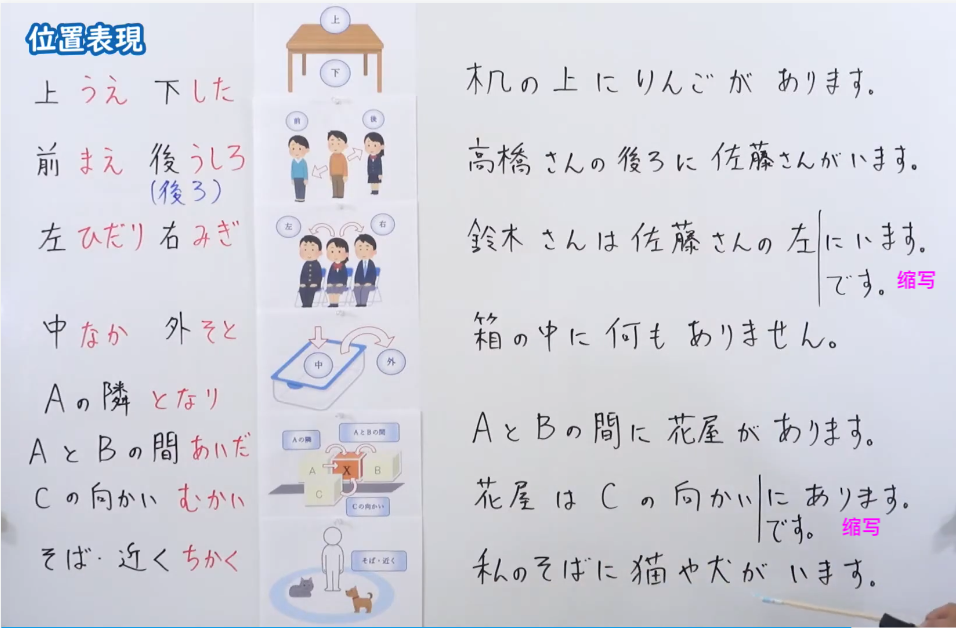 位置表現
上 うえ 下 した
前 まえ 後 うしろ
(後ろ)
左 ひだり 右 みぎ
中 なか 外 そと
Aの隣 となり
AとBの間 あいだ
Cの向かい むかい
そば・近く ちかく
上
下
前
後
左
右
中
外
Aの隣
AとBの間
A
X
B
C
Cの向かい
そば・近く
机の上にりんごがあります。
高橋さんの後ろに佐藤さんがいます。
鈴木さんは佐藤さんの左|にいます。
です。缩写
箱の中に何もありません。
AとBの間に花屋があります。
花屋はCの向かい|にあります。
です。缩写
私のそばに猫や犬がいます。